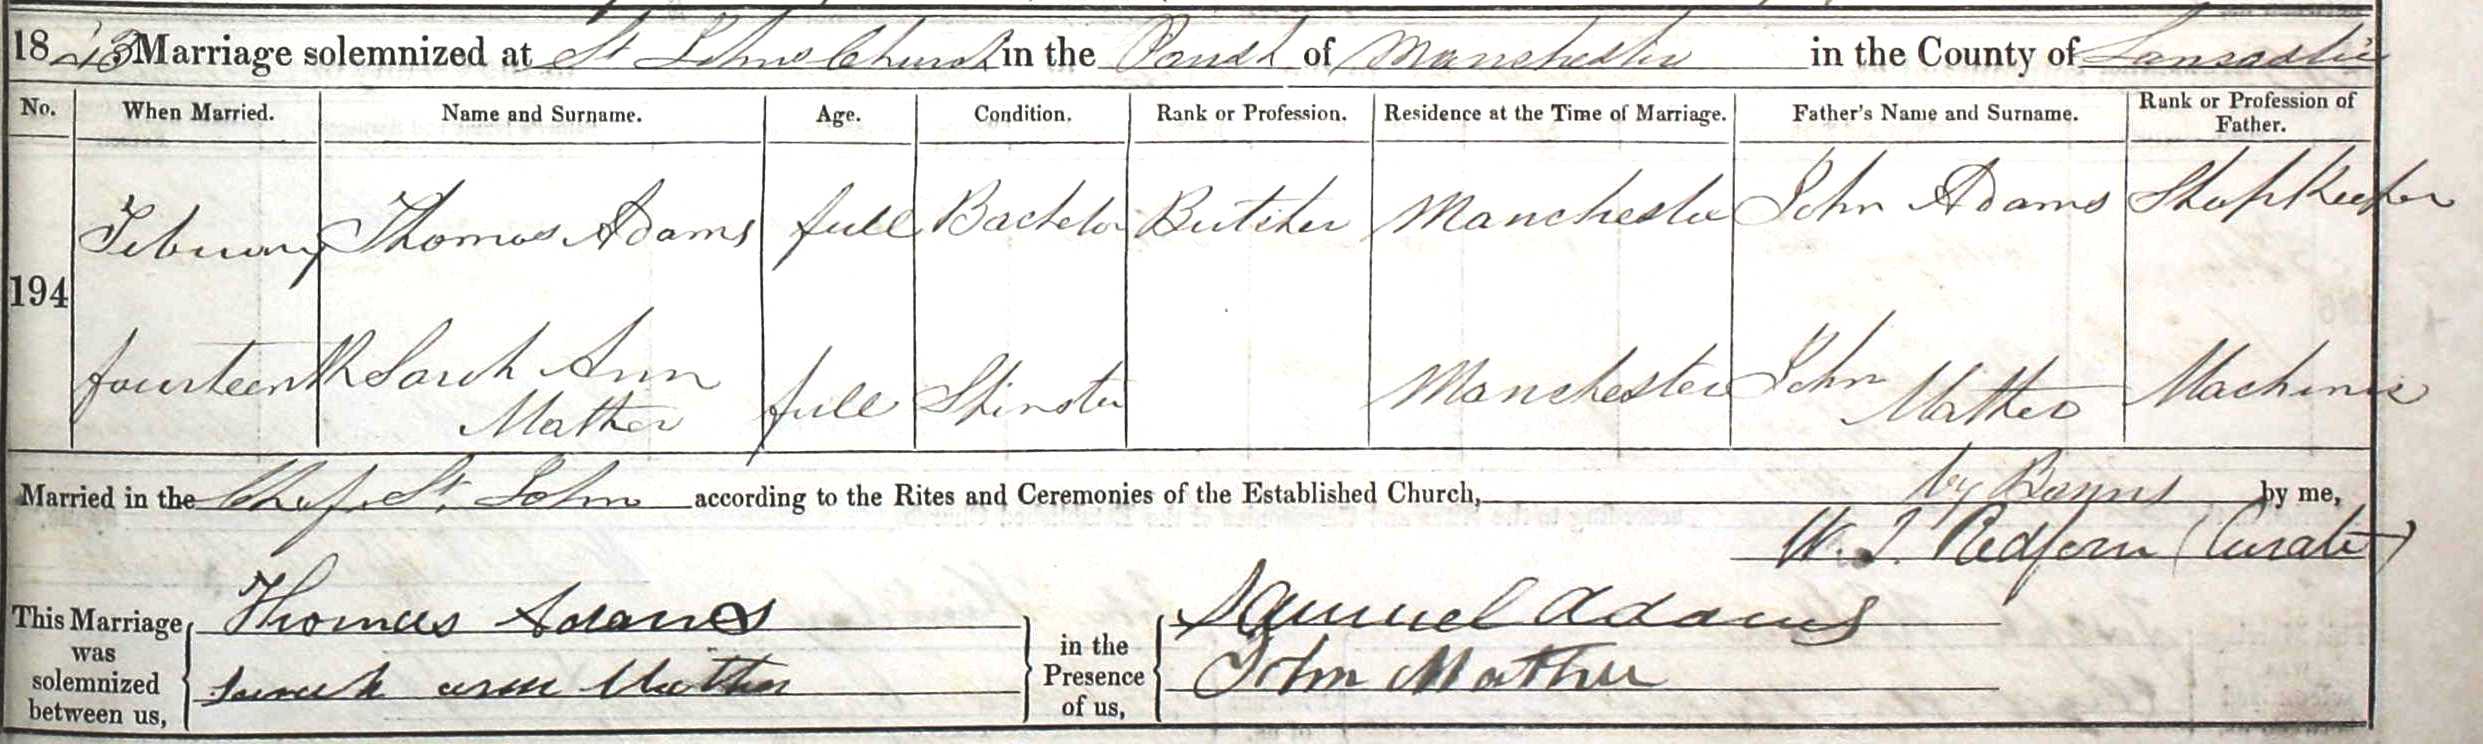 1843 Marriage solemnized at St Johns Church in the Parish of Manchester in the County of Lancaster
No. When Married. Name and Surname. Age. Condition. Rank or Profession. Residence at the Time of Marriage. Father's Name and Surname. Rank or Profession of Father.
194
February Thomas Adams full Bachelor Butcher Manchester John Adams Shopkeeper
fourteenth Sarah Ann Mather full Spinster Manchester John Mather Machinic
Married in the Chap. St. John according to the Rites and Ceremonies of the Established Church, by Banns by me,
W. J. Redfern (Curate)
This Marriage was solemnized between us,
Thomas Adams
Sarah ann Mather
in the Presence of us,
Samuel Adams
John Mather